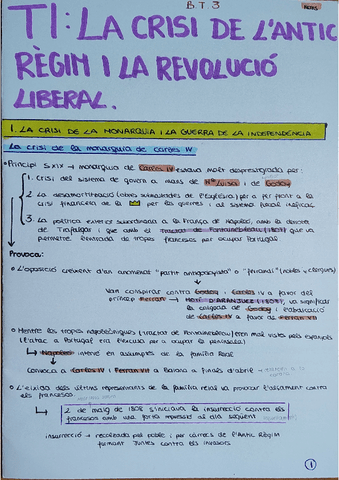 B T. 3
T1: LA CRISI DE L'ANTIC
RÈGIM I LA REVOLUCIÓ
LIBERAL.
1. LA CRISI DE LA MONARQUIA I LA GUERRA DE LA INDEPENDÈNCIA
La crisi de la monarquia de Carles IV
Principi s.XIX → monarquia de Carles IV estava molt desprestigiada per:
1. Crisi del sistema de govern a mans de Mª Luisa i de Godoy
2. La desamortització (obres subhastades de l'Església) per a fer front a la
crisi financera de la per les guerres i al sistema fiscal ineficaç
3. La política exterior subordinada a la França de Napoleó, amb la derrota
de Trafalgar i que amb el Tractat de Fontainebleau (1807) que va
permetre l'entrada de tropes franceses per ocupar Portugal
Provoca:
L'oposició creixent d'un anomenat "partit antigodoyista" o "fernandí" (nobles y clergues)
Van conspirar contra Godoy i Carles IV a favor del
príncep Ferran → MOTÍ D'ARANJUEZ (1808), va significar
la caiguda de Godoy i l'abdicació
de Carles IV a favor de Ferran VII
Mentre les tropes napoleòniques (tractat de Fontainebleau) eren mal vistes pels espanyols
(l'atac a Portugal era excusa per a ocupar la península)
Napoleó intervé en assumptes de la família Real
Convoca a Carles IV i Ferran VII a Baiona a finals d'abril →
L'eixida dels últims representants de la família reial va provocar l'alçament contra
els francesos
2 de maig de 1808 s'iniciava la insurrecció contra els
francesos amb una forta repressió al dia següent
insurrecció → recolzada pel poble i per càrrecs de l'Antic Règim
formant Juntes contra els invasors
1